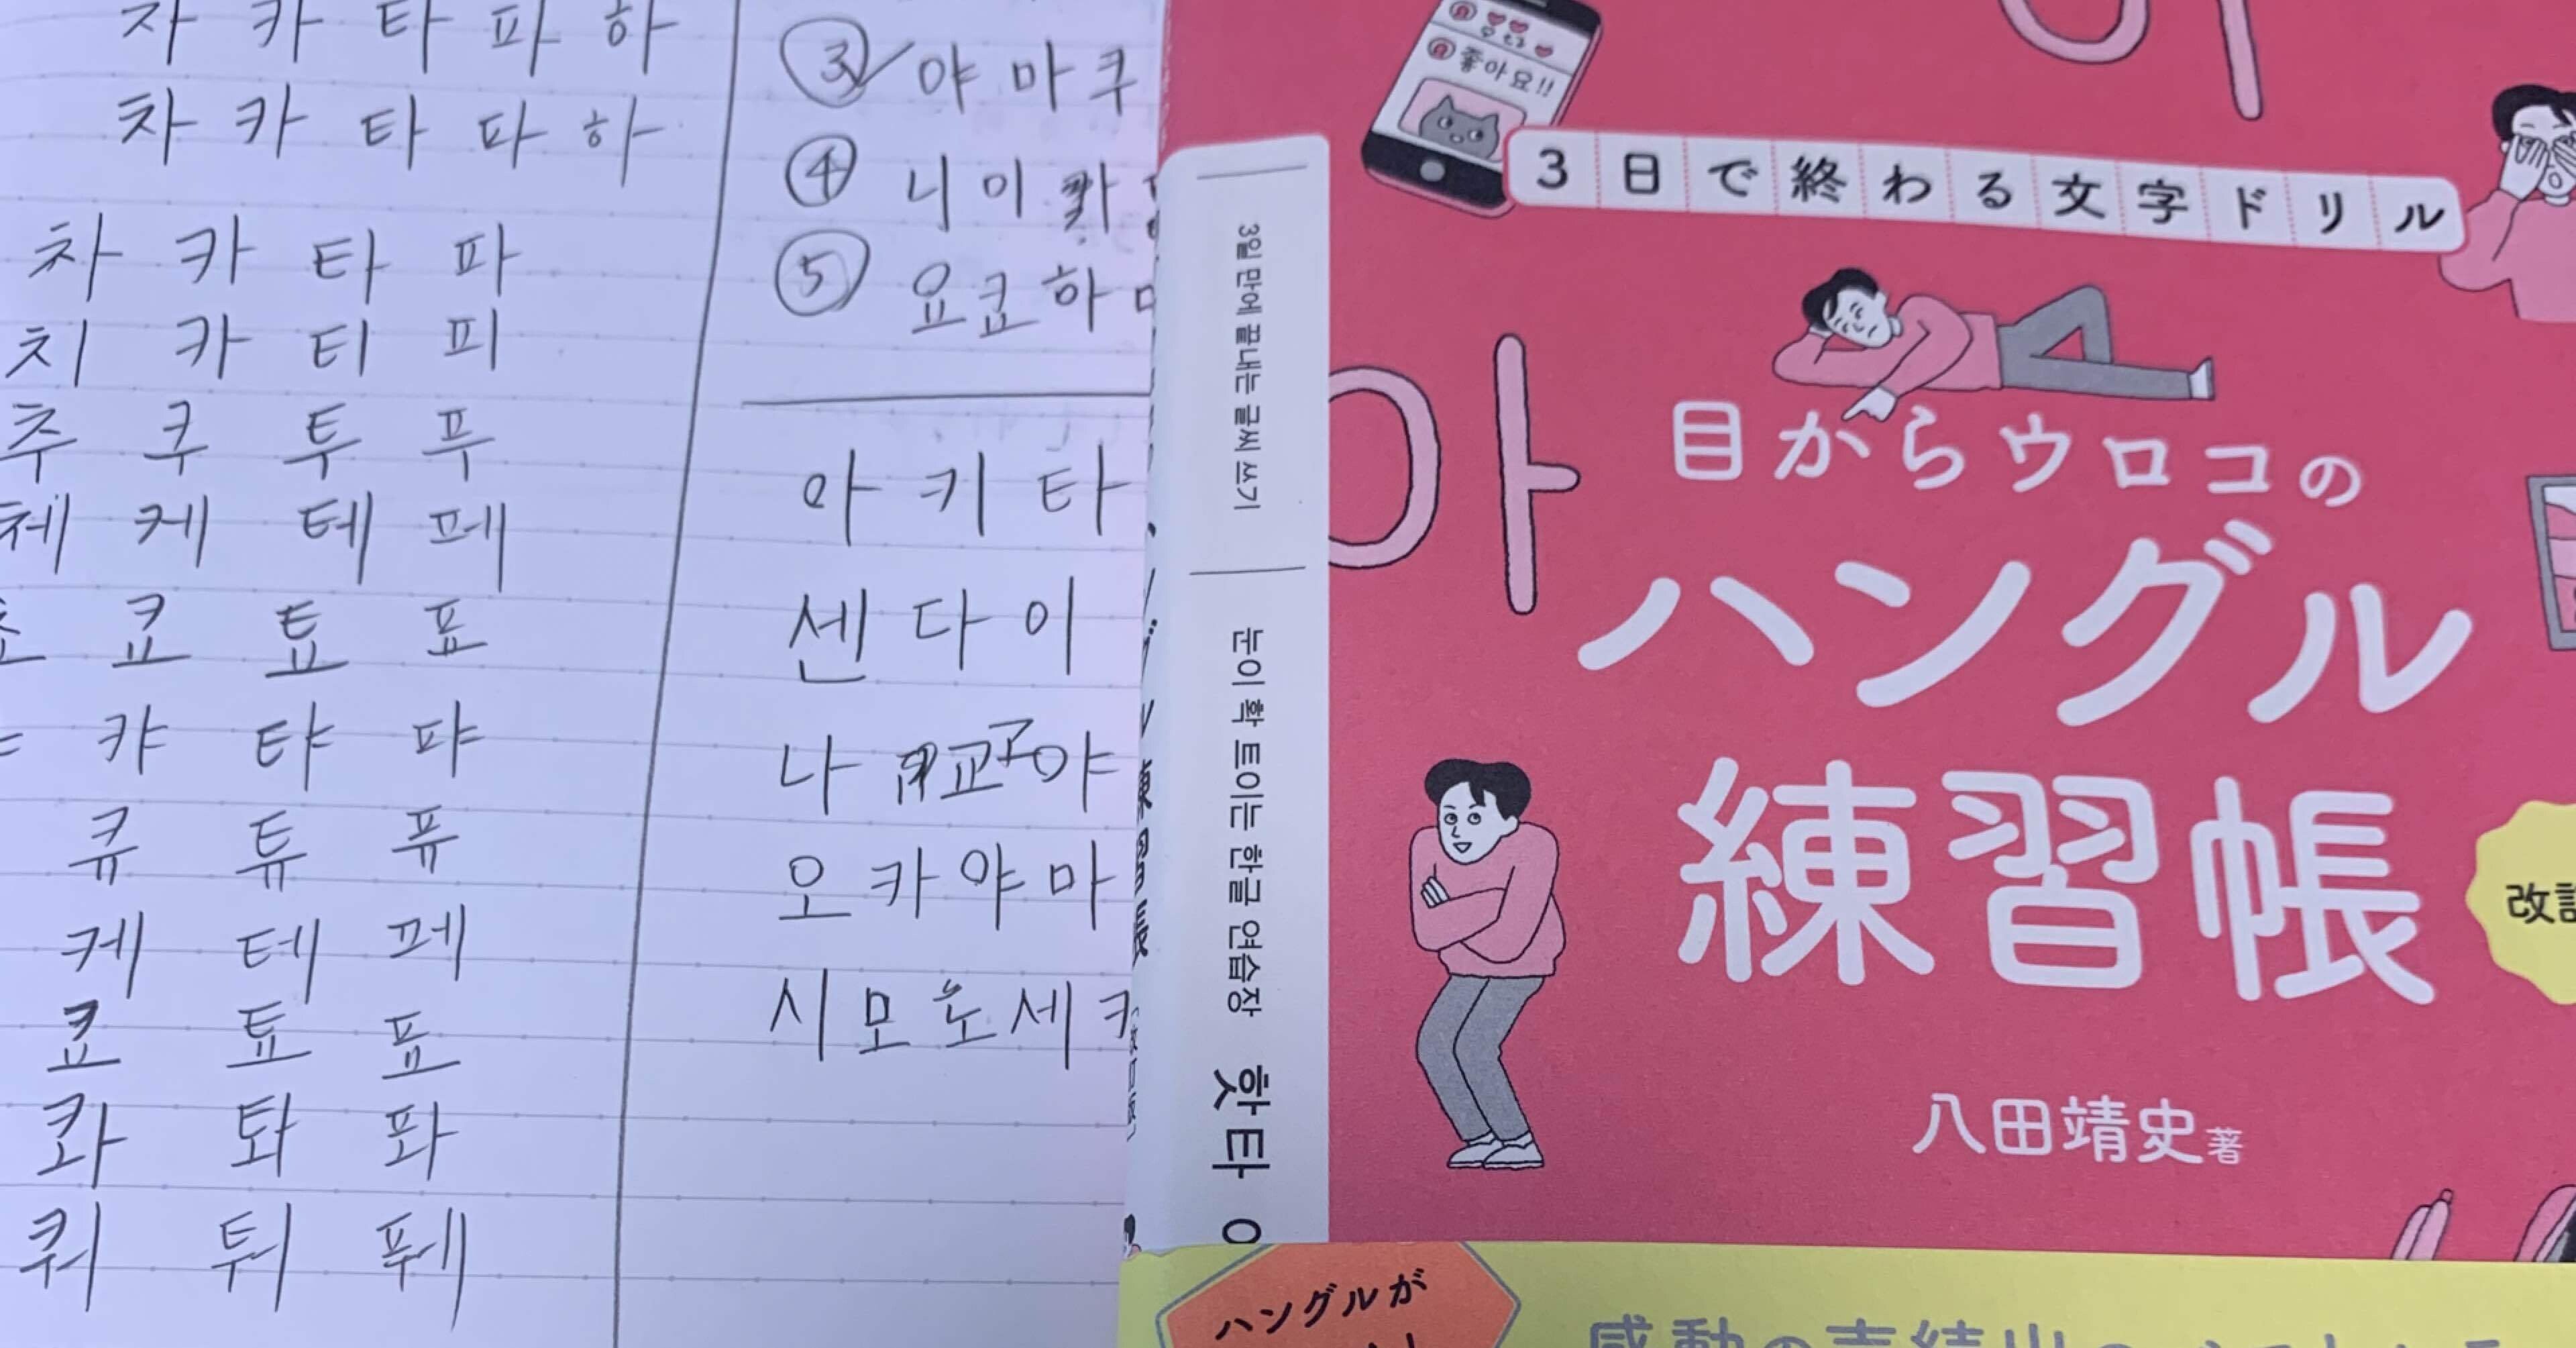 자 카 타 파 하
차 카 타 파 하
차 카 타 파
치 카 티 피
추 쿠 투 푸
체 케 테 페
쿄 툐 표
캬 탸 퍄
큐 튜 퓨
케 테 페
쿄 툐 표
콰 톼 퐈
쿼 튀 풰
③ 야 마 쿠
④ 니 이
⑤ 요 쿄 하
아 키 타
센 다 이
나 교 야
오 카 야 마
시 모 노 세 키
3일 만에 끝내는 글씨 쓰기
눈이 확 트이는 한글 연습장
핫타
좋아요!!
3日で終わる文字ドリル
아
目からウロコの
ハングル
練習帳
改訂
八田靖史 著
ハングルが